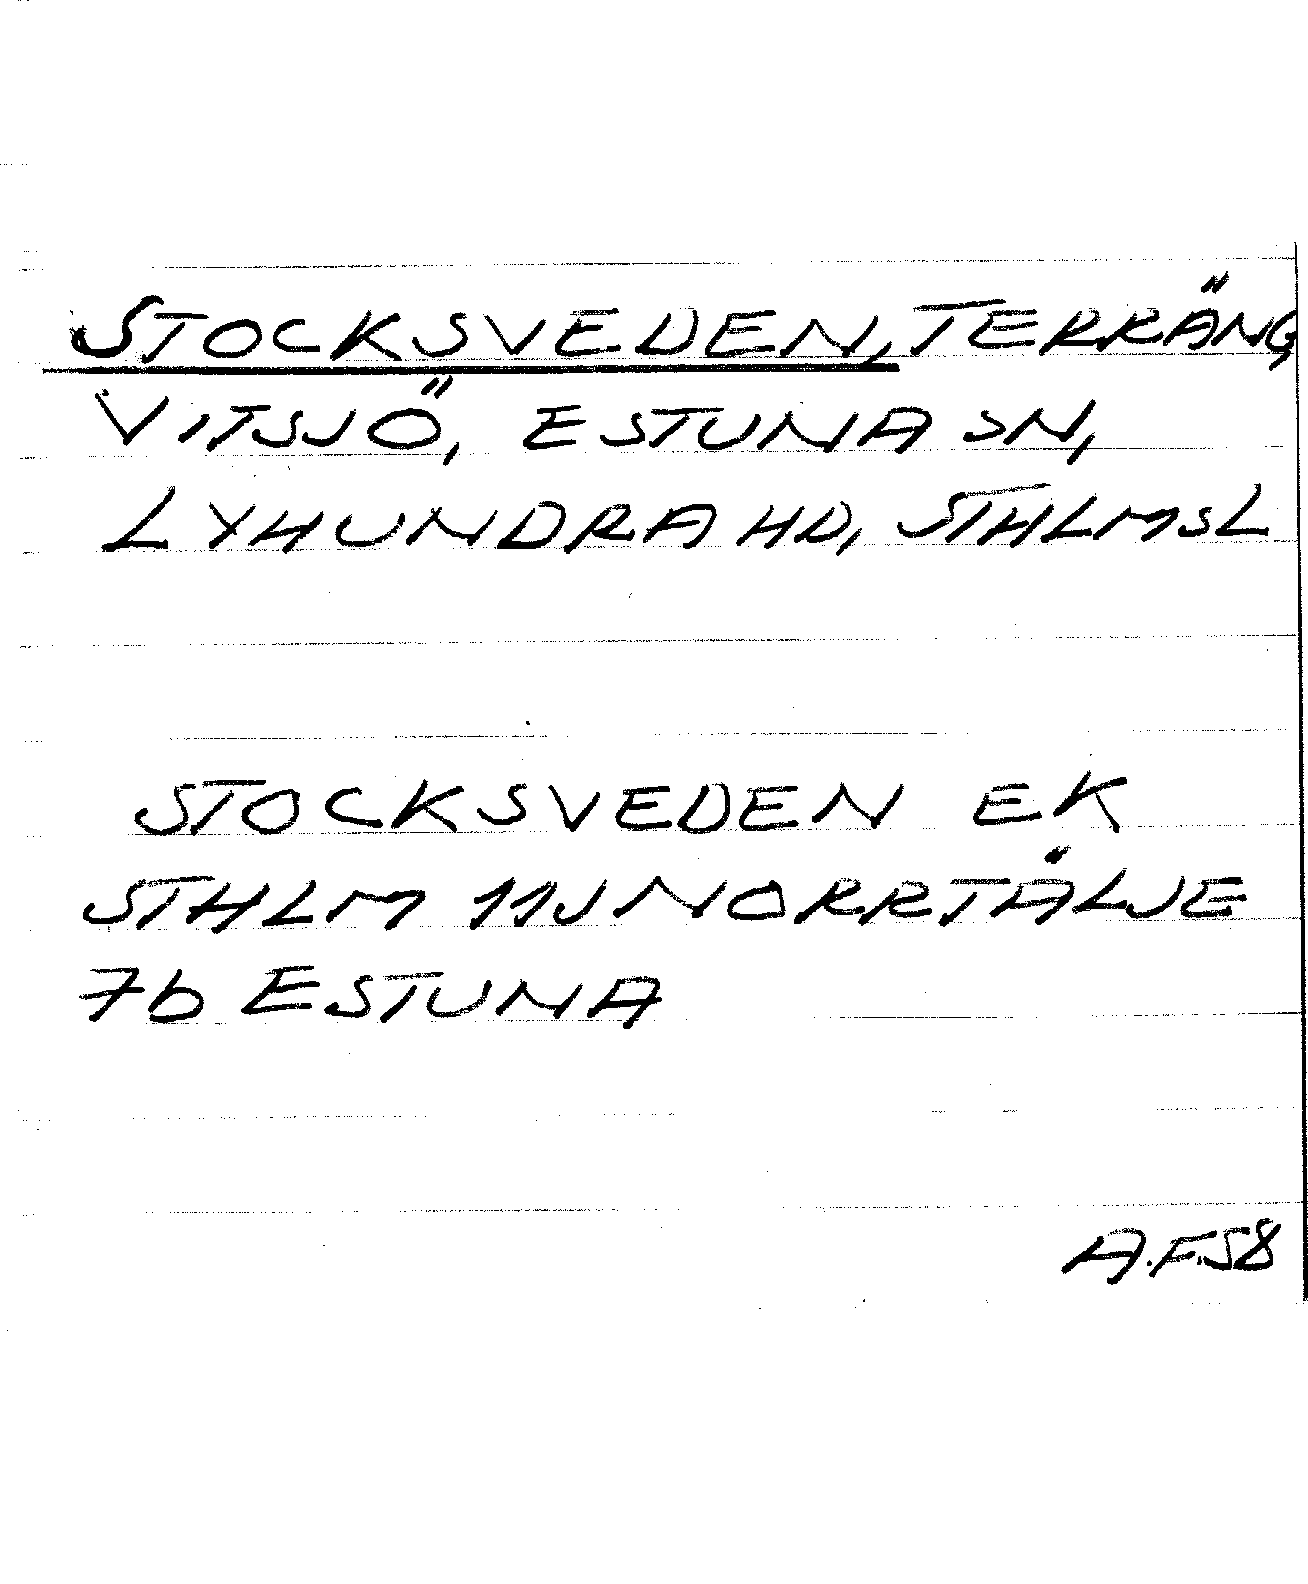 STOCKSVEDEN, TERRÄNG
VITSJÖ, ESTUNA SN,
LYHUNDRA HD, STHLMSL
STOCKSVEDEN EK
STHLM 11J NORRTÄLJE
7b ESTUNA
A.F.58